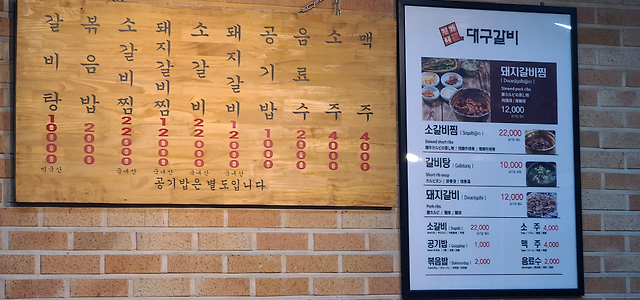 갈비탕 10000 미국산
볶음밥 2000
소갈비찜 22000 국내산
돼지갈비찜 12000 국내산
소갈비 22000 국내산
돼지갈비 12000 국내산
공기밥 1000
음료수 2000
소주 4000
맥주 4000
공기밥은 별도입니다
대구갈비
돼지갈비찜
( Dwaejigalbijjim )
Stewed pork ribs
12,000
소갈비찜 ( Sogalbijjim ) 22,000
Stewed short ribs
갈비탕 ( Galbitang ) 10,000
Short rib soup
カルビタン / 排骨湯 / 排骨汤
돼지갈비 ( Dwaejigalbi ) 12,000
Pork ribs
소갈비 ( Sogalbi ) 22,000
공기밥 ( Gonggibap ) 1,000
볶음밥 ( Bokkeumbap ) 2,000
소 주 4,000
맥 주 4,000
음료수 2,000